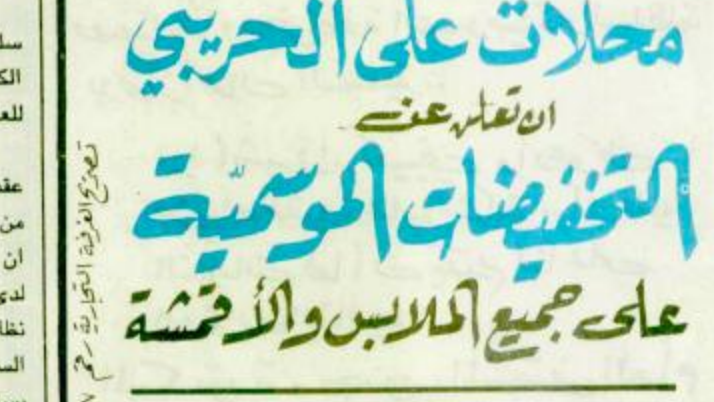 محلات على الحريبي
ان تعلن عن
التخفيضات الموسميّة
على جميع الملابس والأقمشة
تصريح الغرفة التجارية رقم
عقد
من
ان